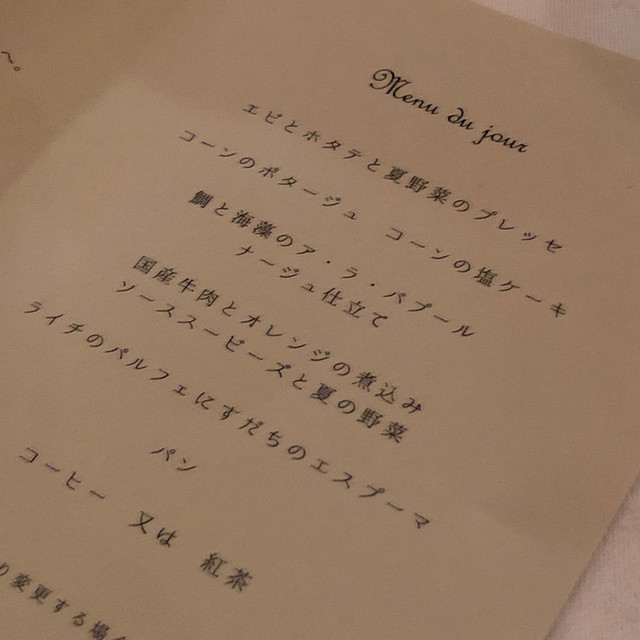 へ。
Menu du jour
エビとホタテと夏野菜のプレッセ
コーンのポタージュ　コーンの塩ケーキ
鯛と海藻のア・ラ・バプール
ナージュ仕立て
国産牛肉とオレンジの煮込み
ソーススービーズと夏の野菜
ライチのパルフェにすだちのエスプーマ
パン
コーヒー　又は　紅茶
り変更する場合